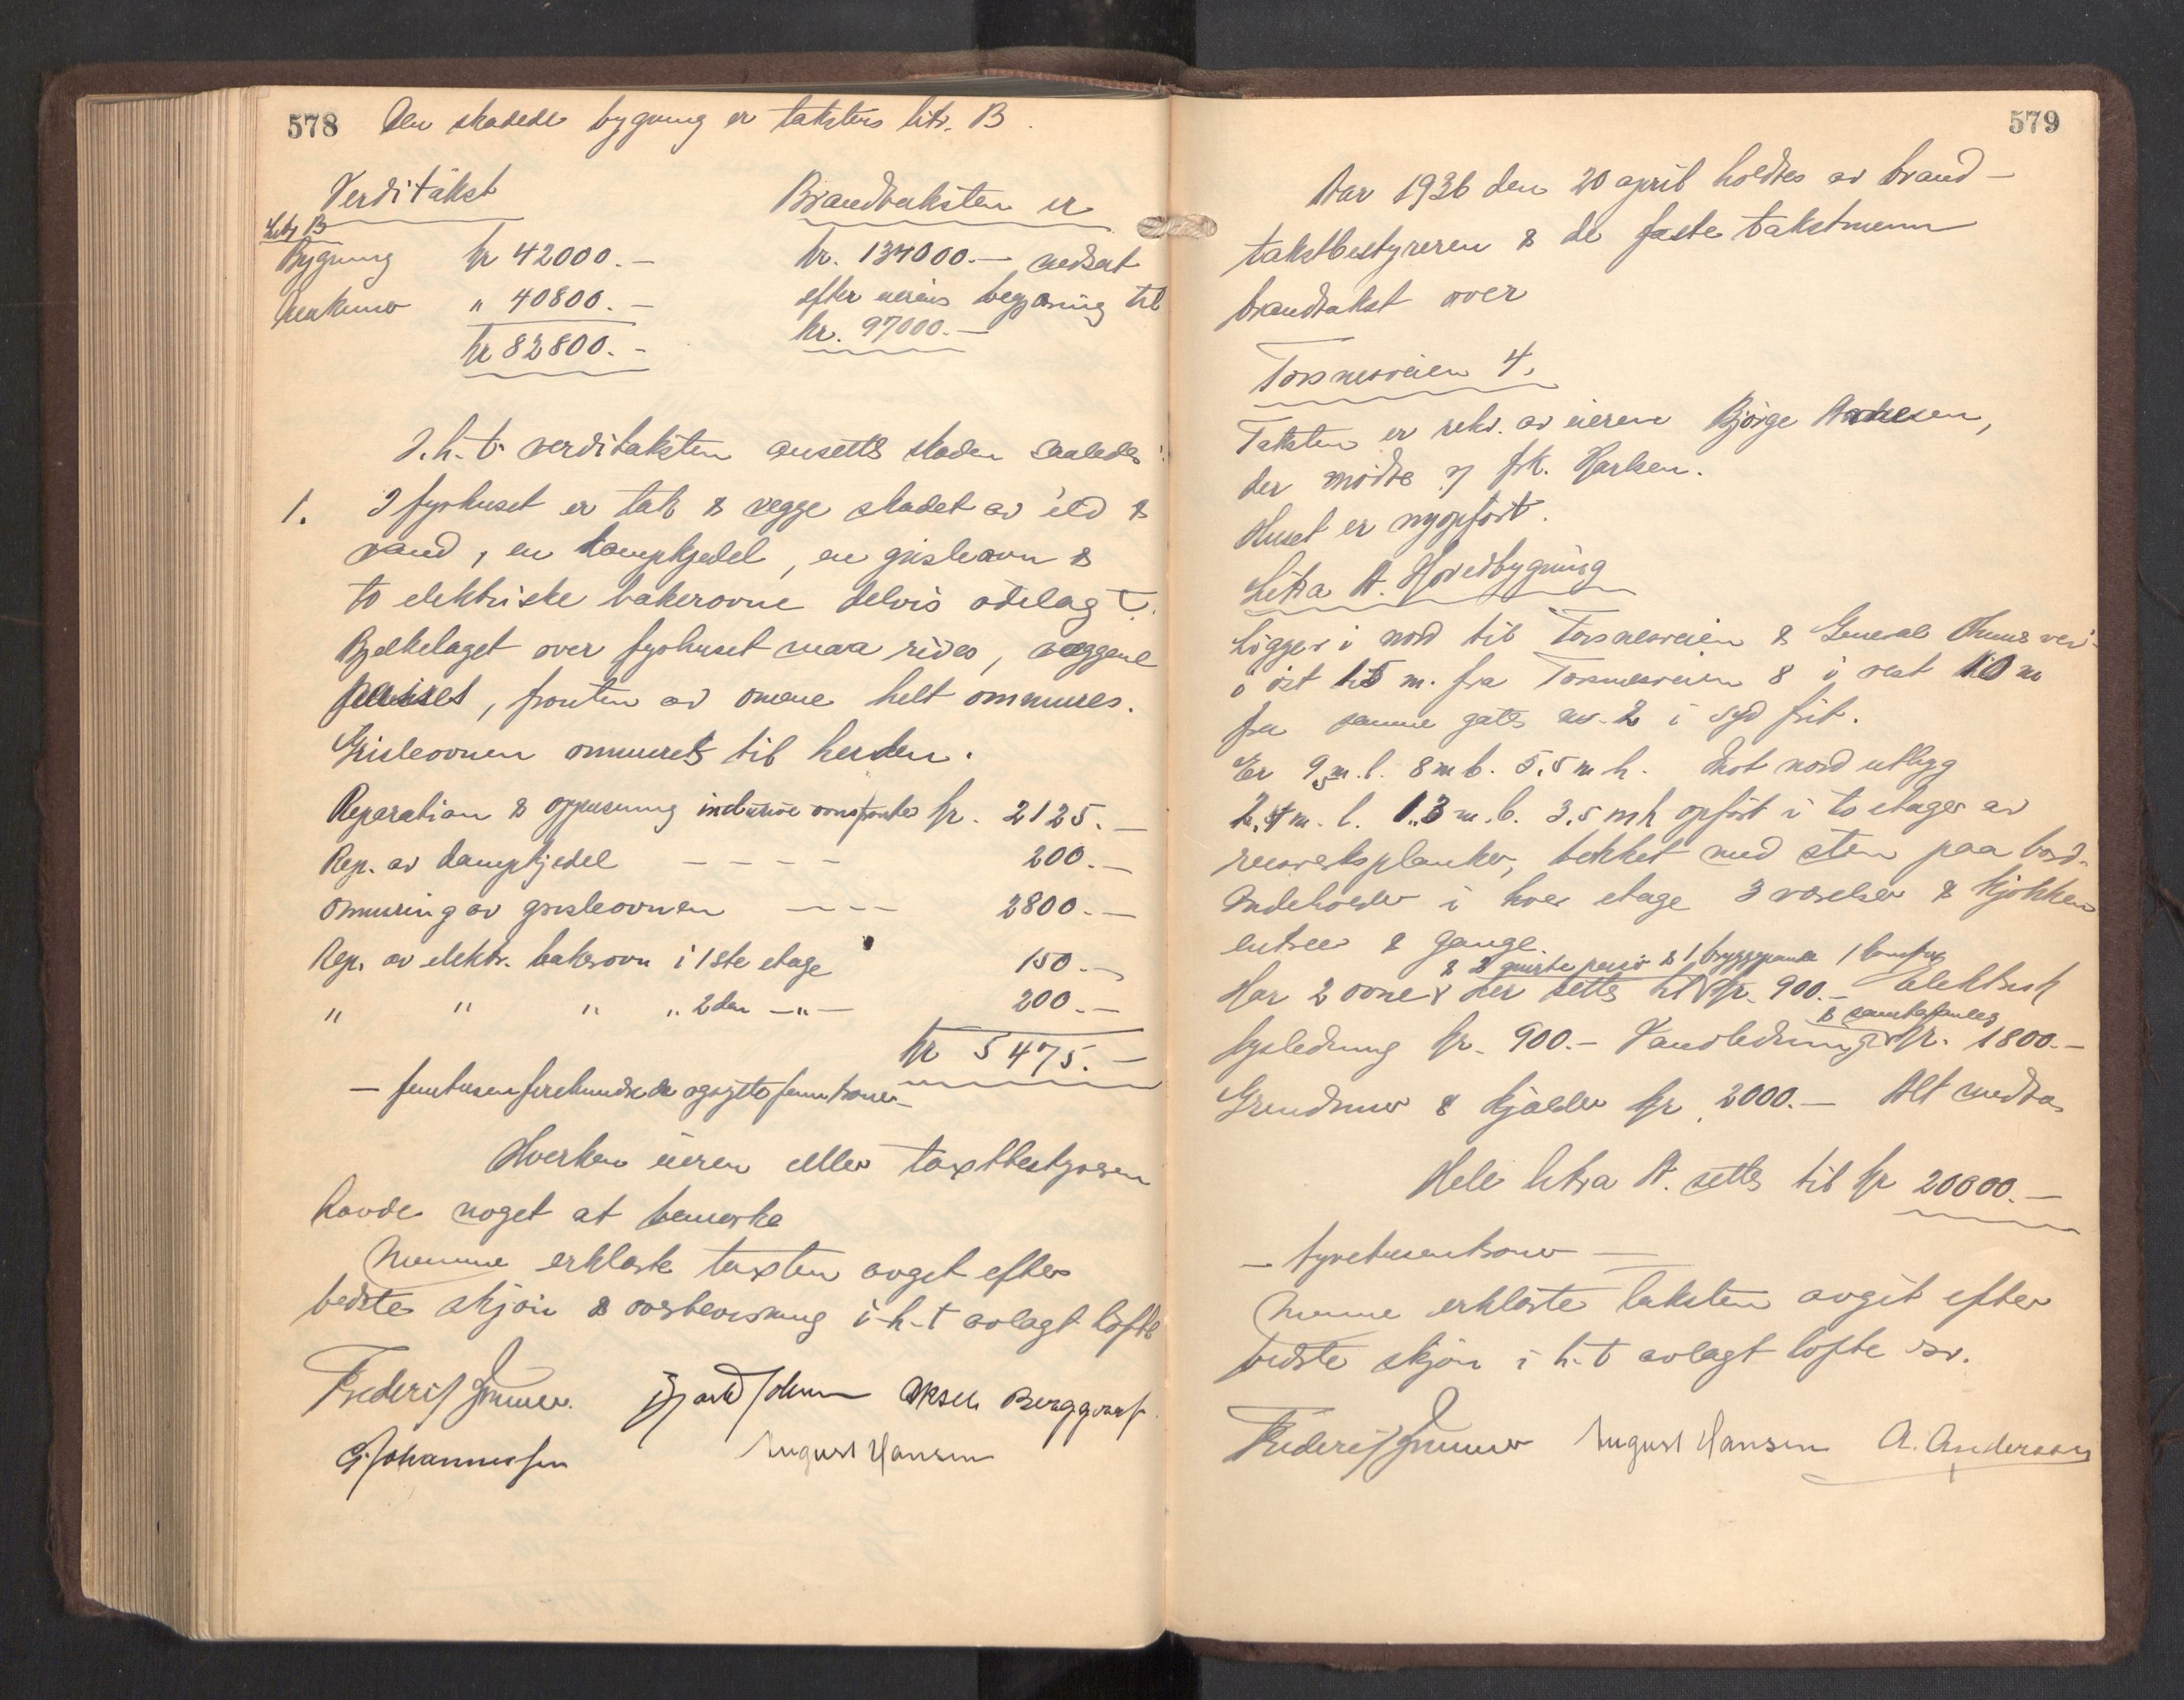 578 Den skadede bygning er takstens litr. B.
Verditakst Brandtaksten er
Litr B
Bygning kr 42000.- kr. 134000.- nedsat
" 40800.- efter eierens begjæring til
kr 82800.- kr. 97000.-
I.h.t. verditaksten ansettes skaden saaledes:
1. I fyrhuset er tak & vegge skadet av ild &
vand, en dampkjedel, en grisleovn &
to elektriske bakerovne delvis ødelagt.
Bjelkelaget over fyrhuset maa rives, væggene
pusses, fronten av ovnene helt ommures.
Grisleovnen ommures til herden.
Reparation & oppusning inclusive ovnsfronter kr. 2125.-
Rep. av dampkjedel - - - - 200.-
Ommuring av grisleovnen - - - 2800.-
Rep. av elektr. bakerovn i 1ste etage 150.-
" " " " 2den -"- 200.-
kr 5475.-
- femtusenfirehundrede og syttifem kroner -
Hverken eieren eller taxtbestyreren
havde noget at bemerke
Mennene erklærte taxten avget efter
bedste skjøn & overbevisning i-h-t avlagt løfte
Frederik Grüner. Aksel Berggraf.
G Johannessen August Hansen
579
Aar 1936 den 20 april holdtes av brand-
takstbestyreren & de faste takstmenn
brandtakst over
Torsnesveien 4.
Taksten er rekv. av eieren Bjørge
der mødte v/ frk. Karlsen.
Huset er nyopført.
Litra A. Hovedbygning
Ligger i nord til Torsnesveien & General vei
i øst 15 m. fra Torsnesveien 8 i vest 10 m
fra samme gates nr. 2 i syd frit.
Er 9 m. l. 8 m b. 5.5 m h. Mot nord utbygg
2.4 m. l. 1.3 m. b. 3.5 m h opført i to etager av
reisverksplanker, tekket med sten paa bord.
Indeholder i hver etage 3 værelser & kjøkken
entree & gange.
& 2 & 1 bryggepande 1 komfyr
Har 2 ovne & der settes til kr. 900.- Elektrisk
& sanitæranleg
lysledning kr. 900.- Vandledning kr. 1800.-
Grundmur & kjælder kr. 2000.- Alt medtas
Hele litra A. settes til kr 20000.-
- tyvetusenkroner -
Mennene erklærte taksten avgit efter
bedste skjøn i h-t avlagt løfte
Frederik Grüner August Hansen A. Anderssen